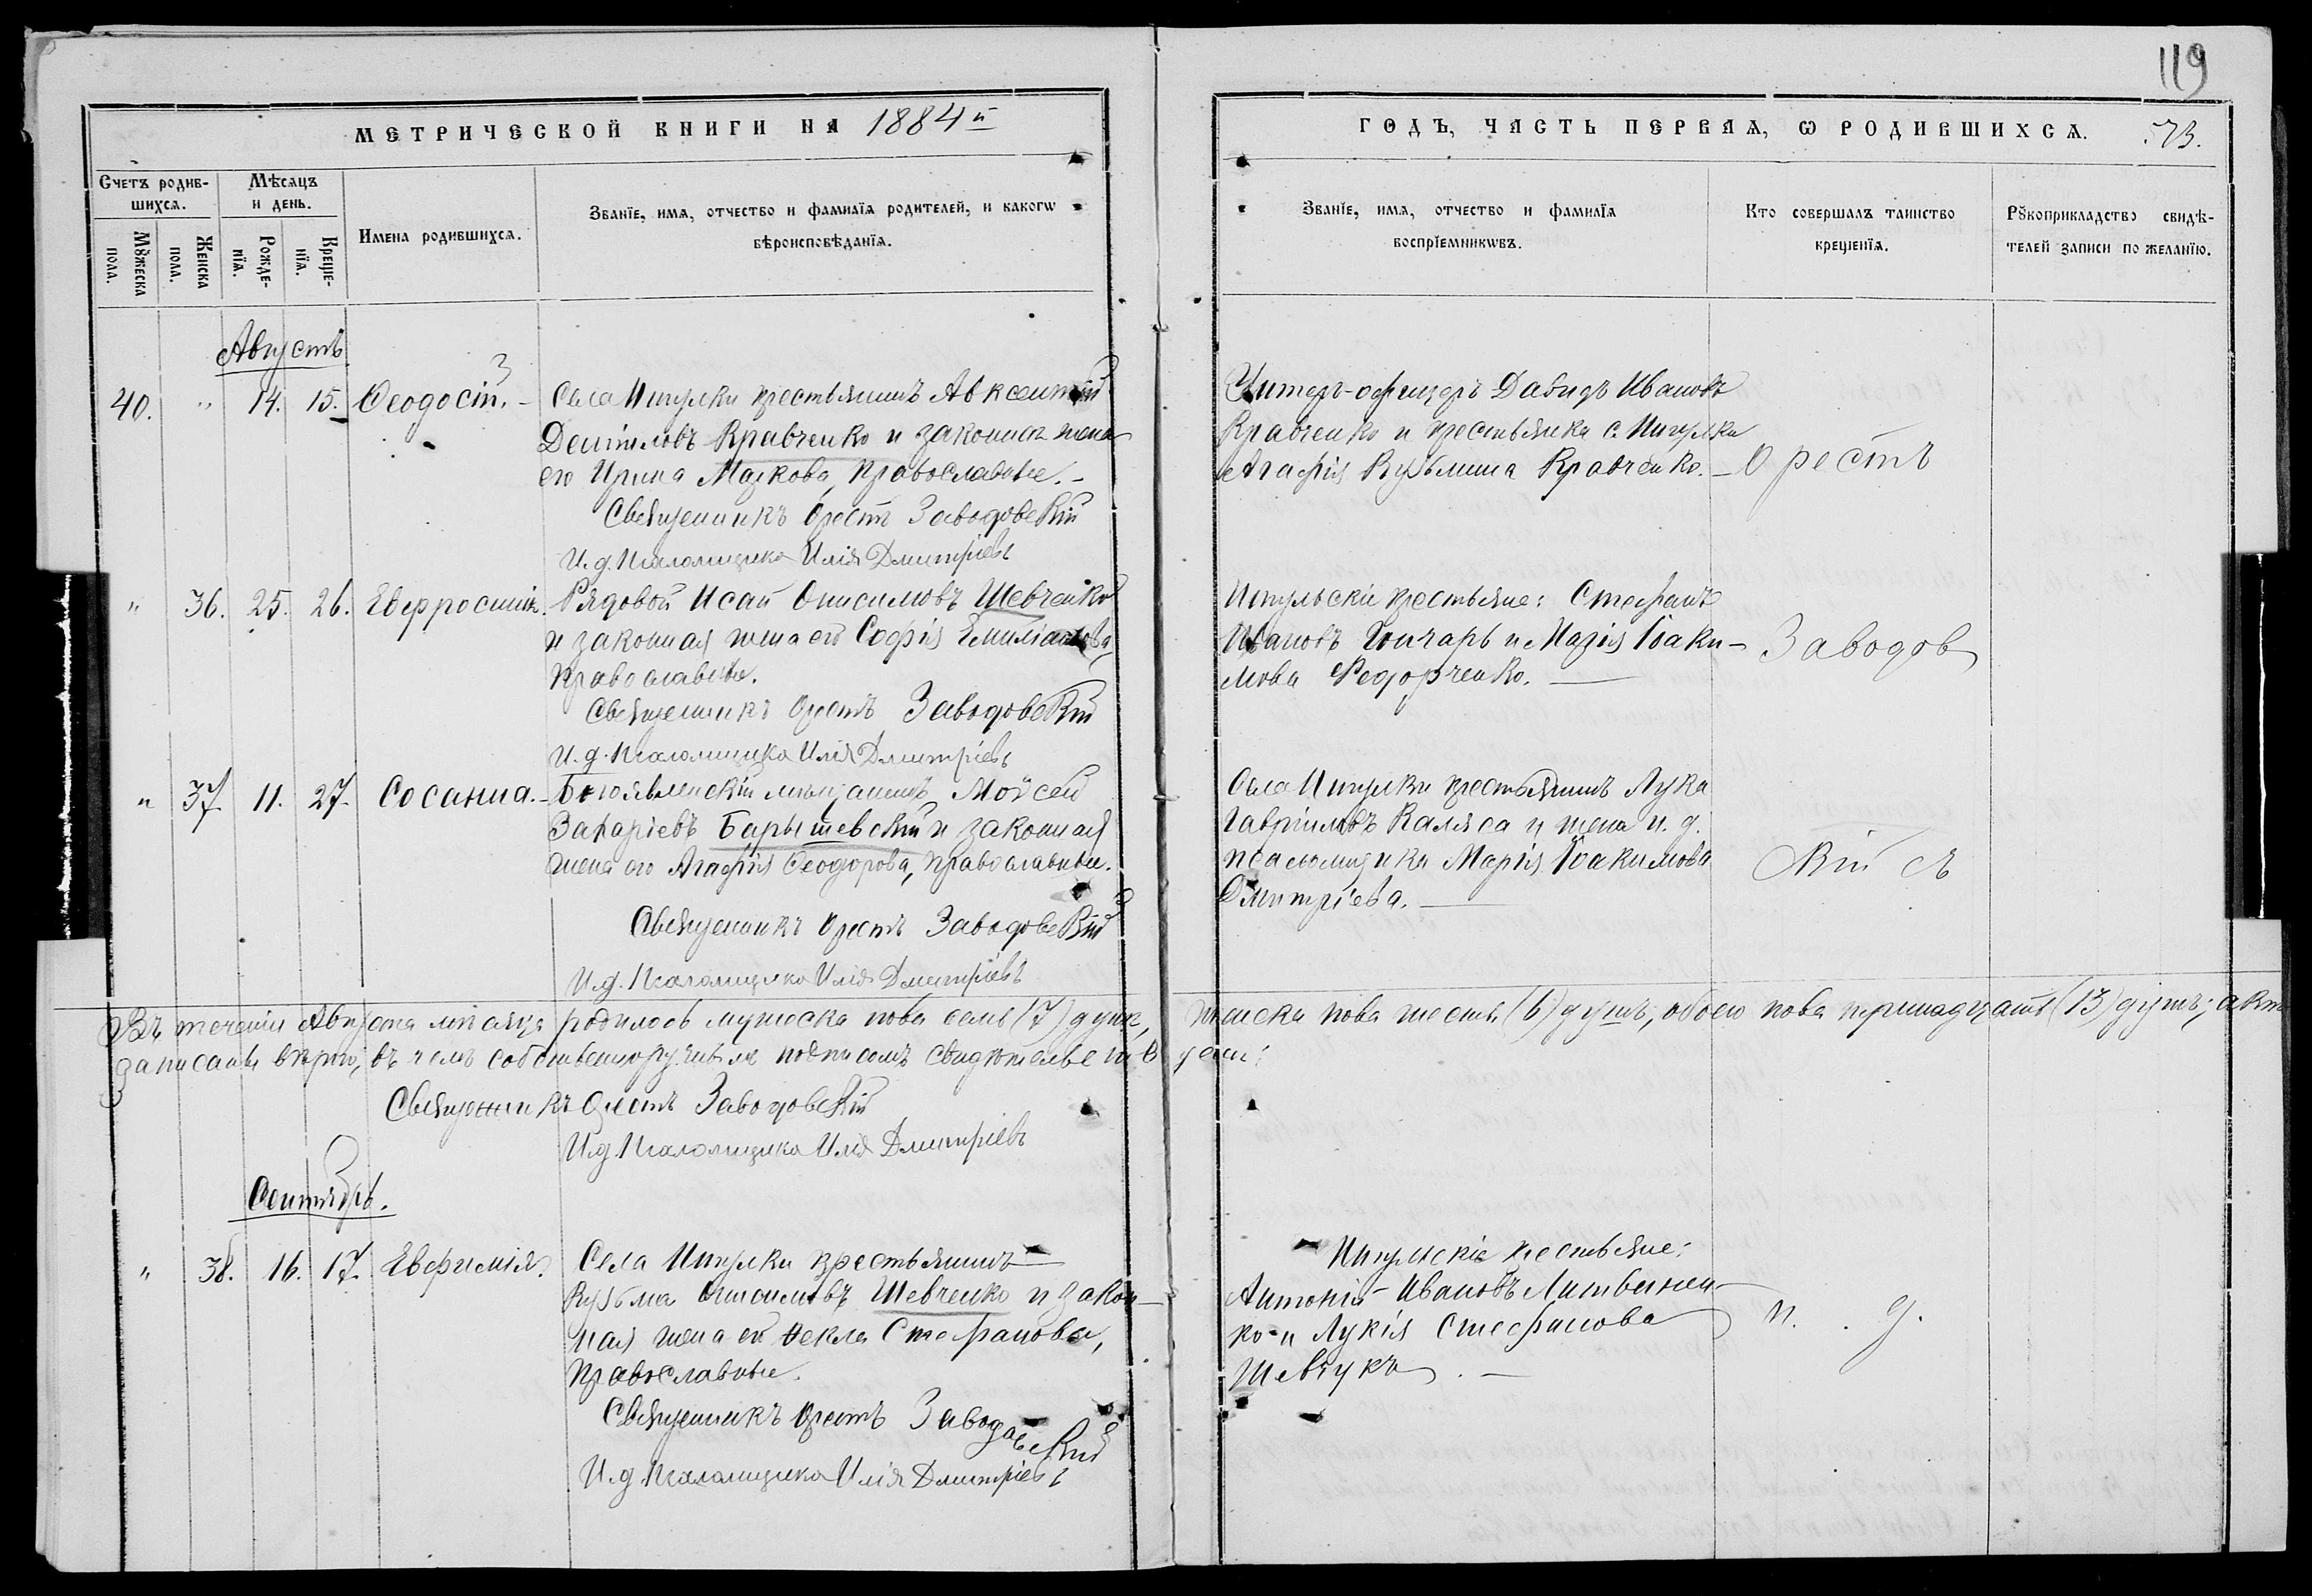 119
МЕТРИЧЕСКОЙ КНИГИ НА 1884й
ГОДЪ, ЧАСТЬ ПЕРВАЯ, Ѡ РОДИВШИХСѦ. 573.
Счетъ родив-
шихсѧ.
Мꙋжеска
пола.
Женска
пола.
Мѣсѧцъ
и день.
Рожде-
нїѧ.
Креще-
нїѧ.
Имена родившихсѧ.
Званїе, имѧ, отчество и фамилїѧ родителей, и какогѡ
вѣроисповѣданїѧ.
Званїе, имѧ, отчество и фамилїѧ
воспрїемникѡвъ.
Кто совершалъ таинство
крещенїѧ.
Рꙋкоприкладство свидѣ-
телей записи по желанїю.
Августъ
40. " 14. 15. Ѳеодосій. –
Села Ингулки крестьянинъ Авксентій
Даніиловъ Кравченко и законная жена
его Ирина Маркова, православные. –
Священникъ Орестъ Заводовскій
И. д. Псаломщика Илія Дмитріевъ
Унтеръ-офицеръ Давидъ Ивановъ
Кравченко и крестьянка с. Ингулки
Агафія Кузьмина Кравченко. –
Орестъ
" 36. 25. 26. Евфросинія.
Рядовой Исай Онисимовъ Шевченко
и законная жена его Софія Емиліанова,
православные.
Священникъ Орестъ Заводовскій
И. д. Псаломщика Илія Дмитріевъ
Ингульскіе крестьяне: Стефанъ
Ивановъ Гончаръ и Марія Іоаки-
мова Федорченко. —
Заводов
" 37. 11. 27. Сосанна. –
Богоявленскій мѣщанинъ Мойсей
Захаріевъ Барышевскій и законная
жена его Агафія Ѳеодорова, православные.
Священникъ Орестъ Заводовскій
И. д. Псаломщика Илія Дмитріевъ
Села Ингулки крестьянинъ Лука
Гавріиловъ Каляса и жена и. д.
псаломщика Марія Іоакимова
Дмитріева. —
скій съ
Въ теченіи Августа мѣсяца родилось мужеска пола семь (7) душъ, женска пола шесть (6) душъ, обоего пола тринадцать (13) душъ; акты
записаны вѣрно, въ чемъ собственноручнымъ подписомъ свидѣтельствуемъ:
Священникъ Орестъ Заводовскій
И. д. Псаломщика Илія Дмитріевъ
Сентябрь.
" 38. 16. 17. Евфимія.
Села Ингулки крестьянинъ —
Кузьма Онисимовъ Шевченко и закон-
ная жена его Ѳекла Стефанова,
православные.
Священникъ Орестъ Заводовскій
И. д. Псаломщика Илія Дмитріевъ
Ингульскіе крестьяне:
Антоній Ивановъ Литвинен-
ко и Лукія Стефанова
Шевчукъ. —
и. д.